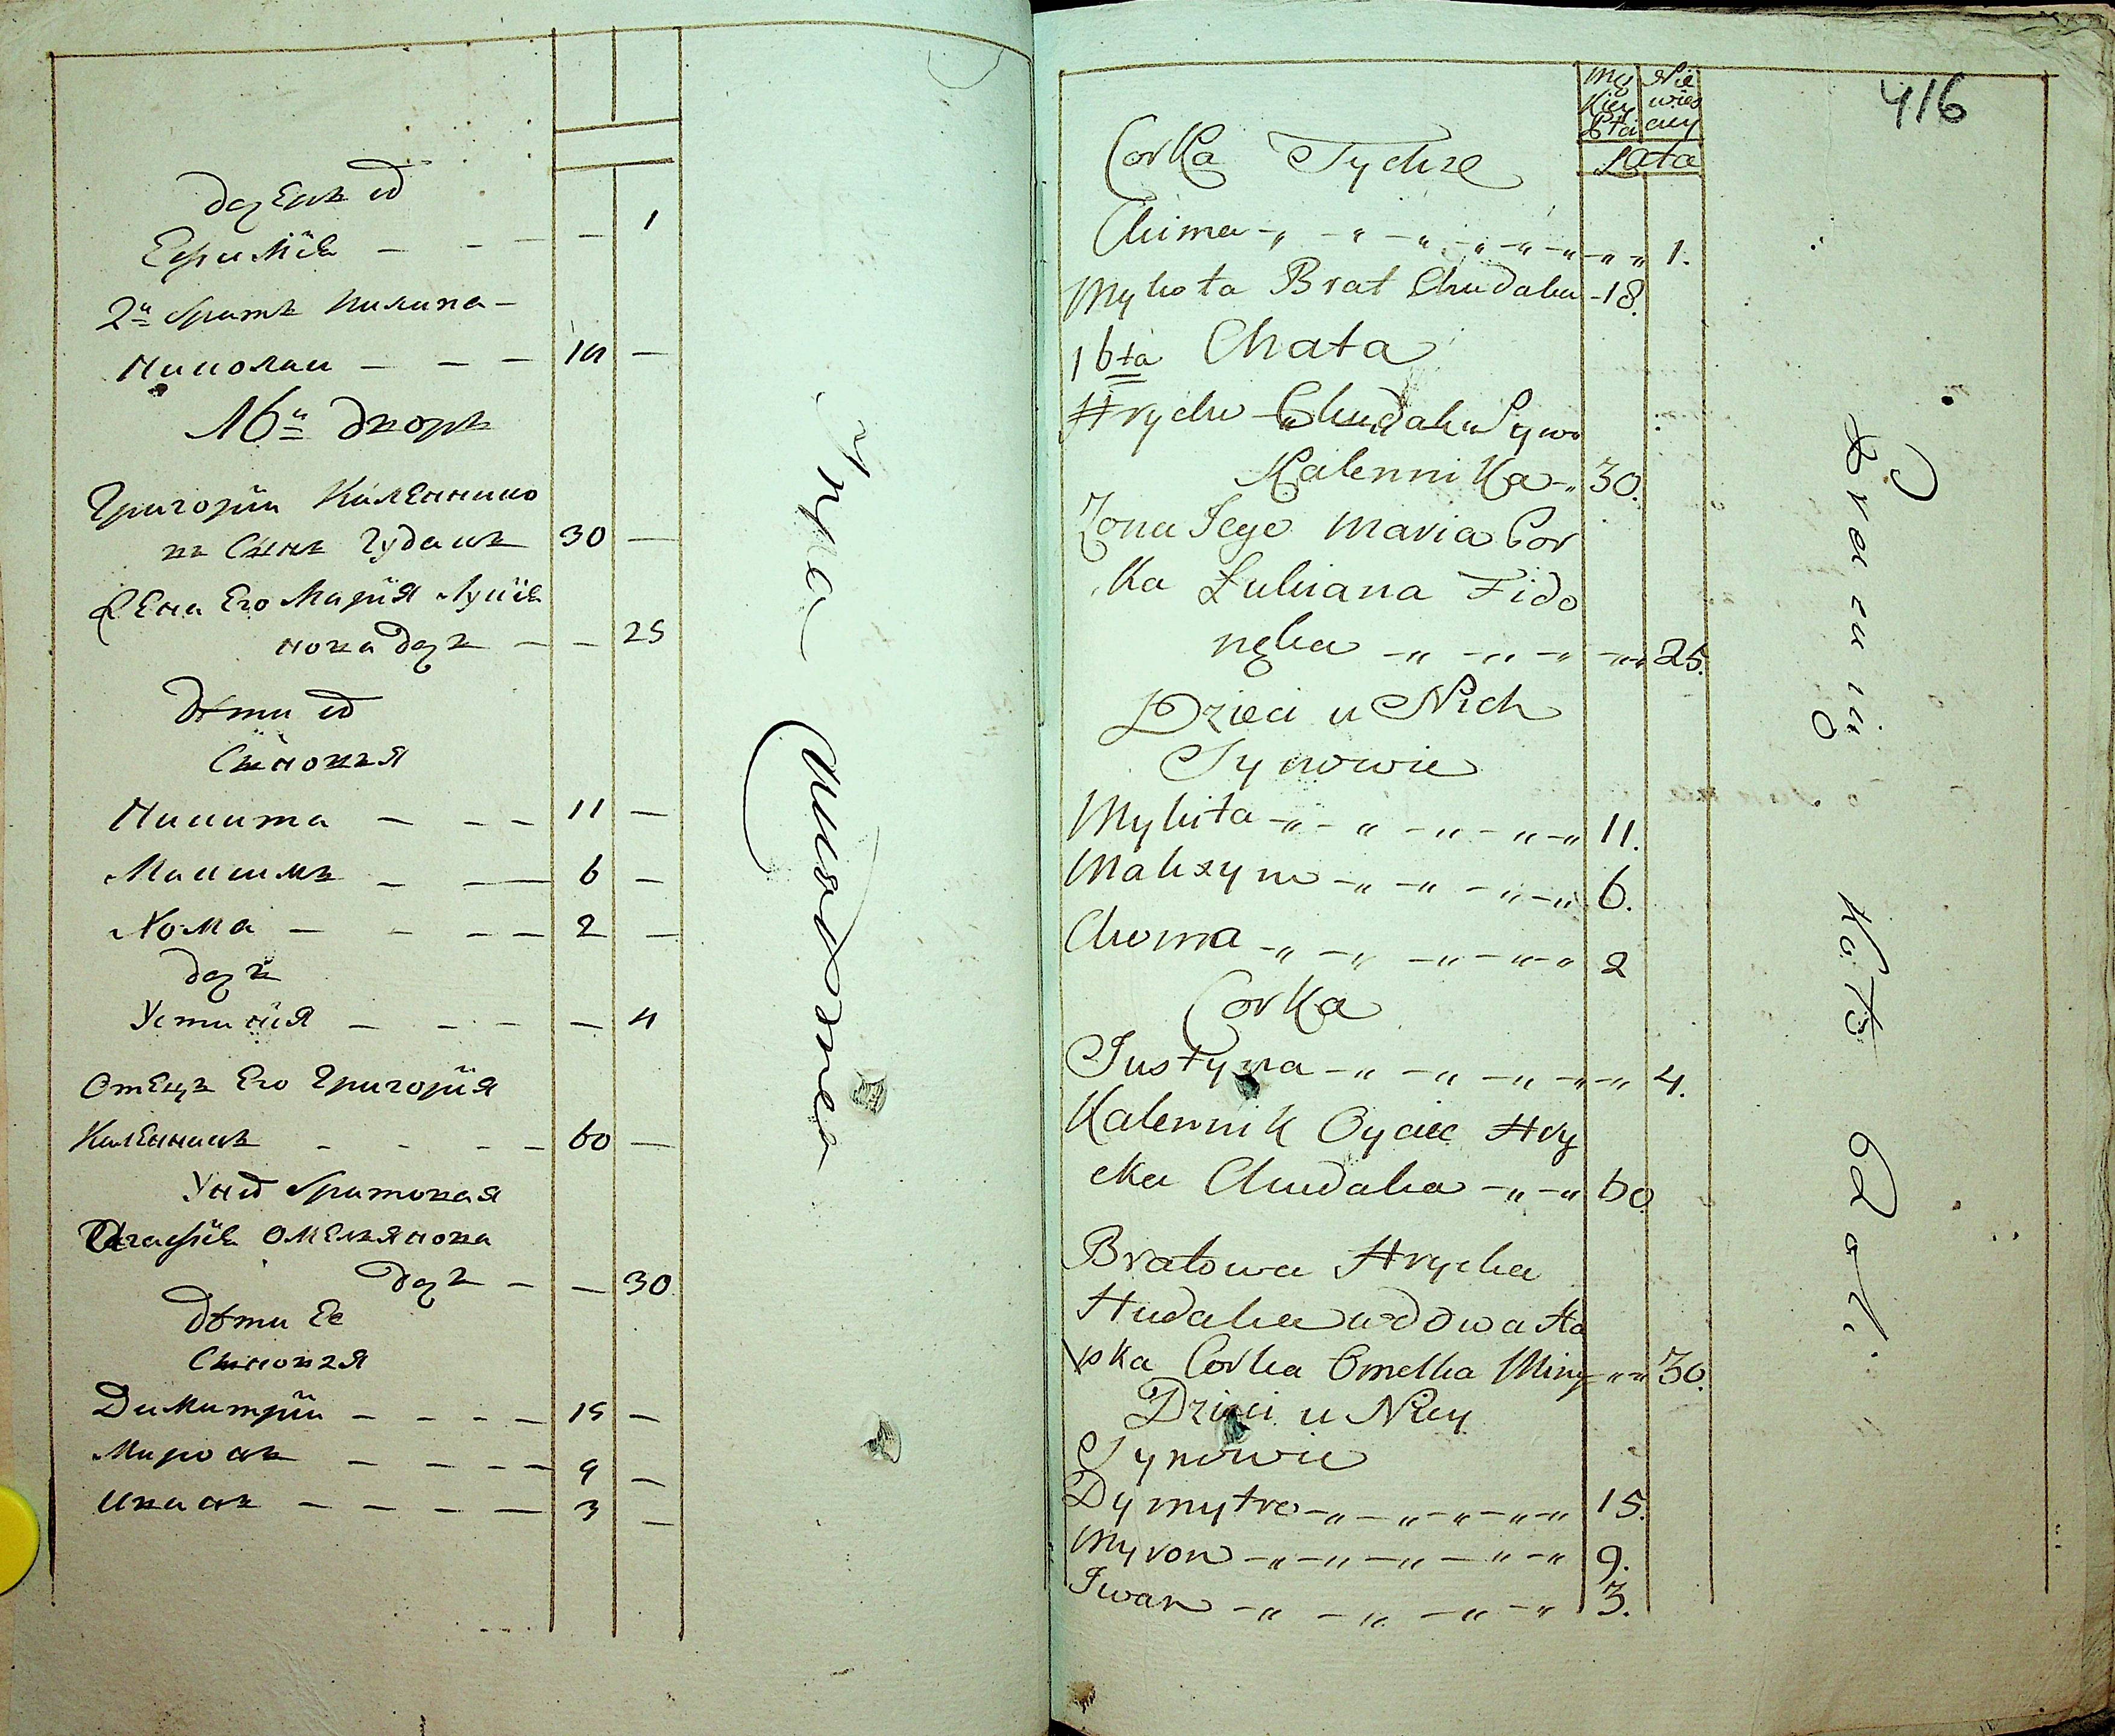 дочь их
Ефимія — — — — 1
2й братъ Килипа —
Николай — — — 18 —
16й дворъ
Григорій Каленнико
въ Сынъ Гудакъ 30 —
Жена Его Марія Лукія
нова дочь — — 25
дѣти их
Сыновья
Никита — — — 11 —
Максимъ — — 6 —
Хома — — — — 2 —
дочь
Устинія — — — — 4
Отецъ Его Григорія
Каленникъ — — — — 60 —
Унихъ братовая
Агафія Омельянова
дочь — — 30
дѣти Ее
Сыновья
Димитрій — — — — 15 —
Миронъ — — — — 9 —
Иванъ — — — — 3 —
416
Mę Nie
skiey wies
Płci ciey
Lata
Corka Tychże
Chima 1.
Mykoła Brat Chudaka 18.
16ta Chata
Hryćko Chudak Syn
Kalennika 30.
Żona Jego Maria Cor
ka Łukiana Fido
nęka 25.
Dzieci u Nich
Synowie
Mykita 11.
Maksym 6.
Choma 2
Corka
Justyna 4.
Kalennik Oyciec Hry
cka Chudaka 60
Bratowa Hrycka
Hudaka wdowa Ha
pka Corka Omelka 30.
Dzieci u Niey
Synowie
Dymytro 15.
Myron 9.
Iwan 3.